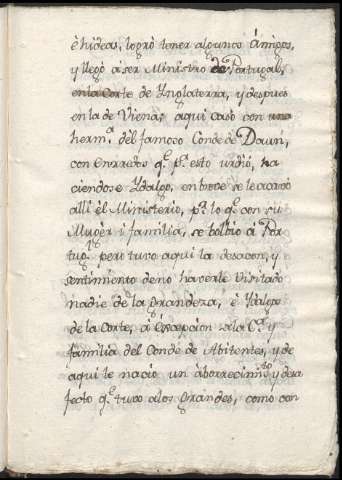 è hideas, logrò tener algunos Amigos,
y llegò á ser Ministro de Portugal,
en la Corte de Ynglaterra, y despues
en la de Viena; aqui casò con una
herm.ª del famoso Conde de Daun,
con enredos q.e p.ª esto urdiò, ha
ciendose Ydalgo, en breve se le acavò
alli èl Ministerio, p.r lo q.e con su
Muger i familia, se bolbio á Por
tug.l pero tuvo aqui la desazon, y
sentimiento de no haverle visitado
nadie de la Grandeza, è Ydalgos
de la Corte, á Excepcion de la C.ª y
familia del Conde de Abitentes, y de
aqui le naciò un àborrecim.to y desa
fecto q.e tuvo a los Grandes, como con